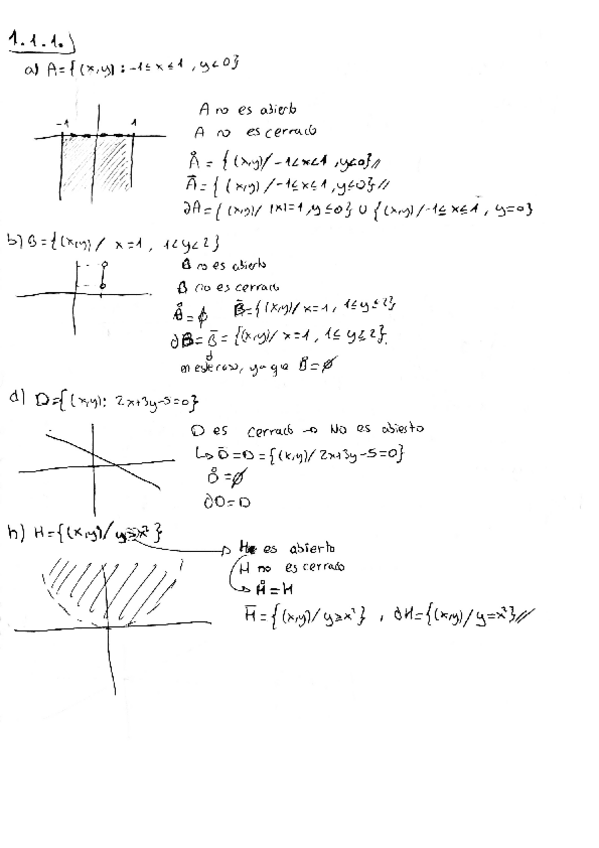 1.1.1.)
a) A={(x,y) : -1≤x≤1, y<0}
-1 1
A no es abierto
A no es cerrado
Å = {(x,y)/ -1<x<1, y<0}//
Ā = {(x,y)/ -1≤x≤1, y≤0}//
∂A = {(x,y)/ |x|=1, y≤0} ∪ {(x,y)/ -1≤x≤1, y=0}
b) B={(x,y)/ x=1, 1<y<2}
B no es abierto
B no es cerrado
B̊ = ∅ B̄={(x,y)/ x=1, 1≤y≤2}
∂B = B̄ = {(x,y)/ x=1, 1≤y≤2}.
en este caso, ya que B̊=∅
d) D={(x,y): 2x+3y-5=0}
D es cerrado → No es abierto
↳ D̄=D={(x,y)/ 2x+3y-5=0}
D̊ = ∅
∂D = D
h) H={(x,y)/ y>x²}
H es abierto
H no es cerrado
H̊ = H
H̄ = {(x,y)/ y≥x²}, ∂H={(x,y)/ y=x²}//